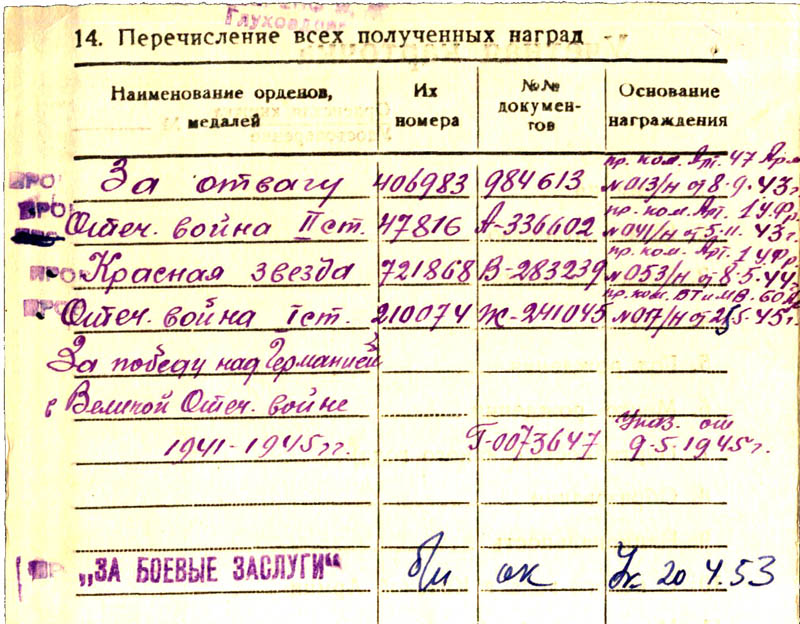 Глуховдие
14. Перечисление всех полученных наград
Наименование орденов, медалей Их номера №№ документов Основание награждения
пр. ком. Арт. 47 Арм
ПРО За отвагу 406983 984613 №013/н от 8.9.43г.
пр. ком. Арт. 1 УФр
ПРО Отеч. война II ст. 47816 А-336602 №041/н от 5.11.43г.
пр. ком. Арт. 1 Уфр
ПРО Красная звезда 721868 В-283239 №053/н от 8.5.44
пр. ком. БТиМВ. 60
ПРО Отеч. война I ст. 210074 Ж-241045 №017/н от 25.5.45г.
За победу над Германией
в Великой Отеч. войне
Указ. от
1941-1945гг. Г-0073647 9.5.1945г.
„ЗА БОЕВЫЕ ЗАСЛУГИ“ б/н ок Ук. 20 4.53